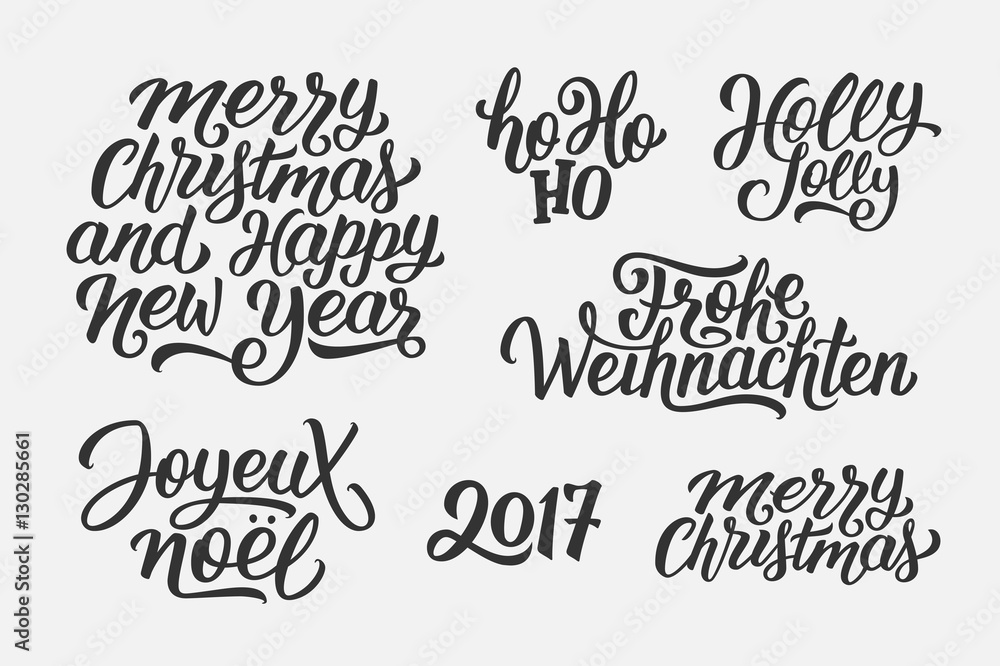 merry
Christmas
and Happy
New Year
ho Ho
HO
Holly
Jolly
Frohe
Weihnachten
Joyeux
noël
2017
merry
Christmas
Adobe Stock | #130285661